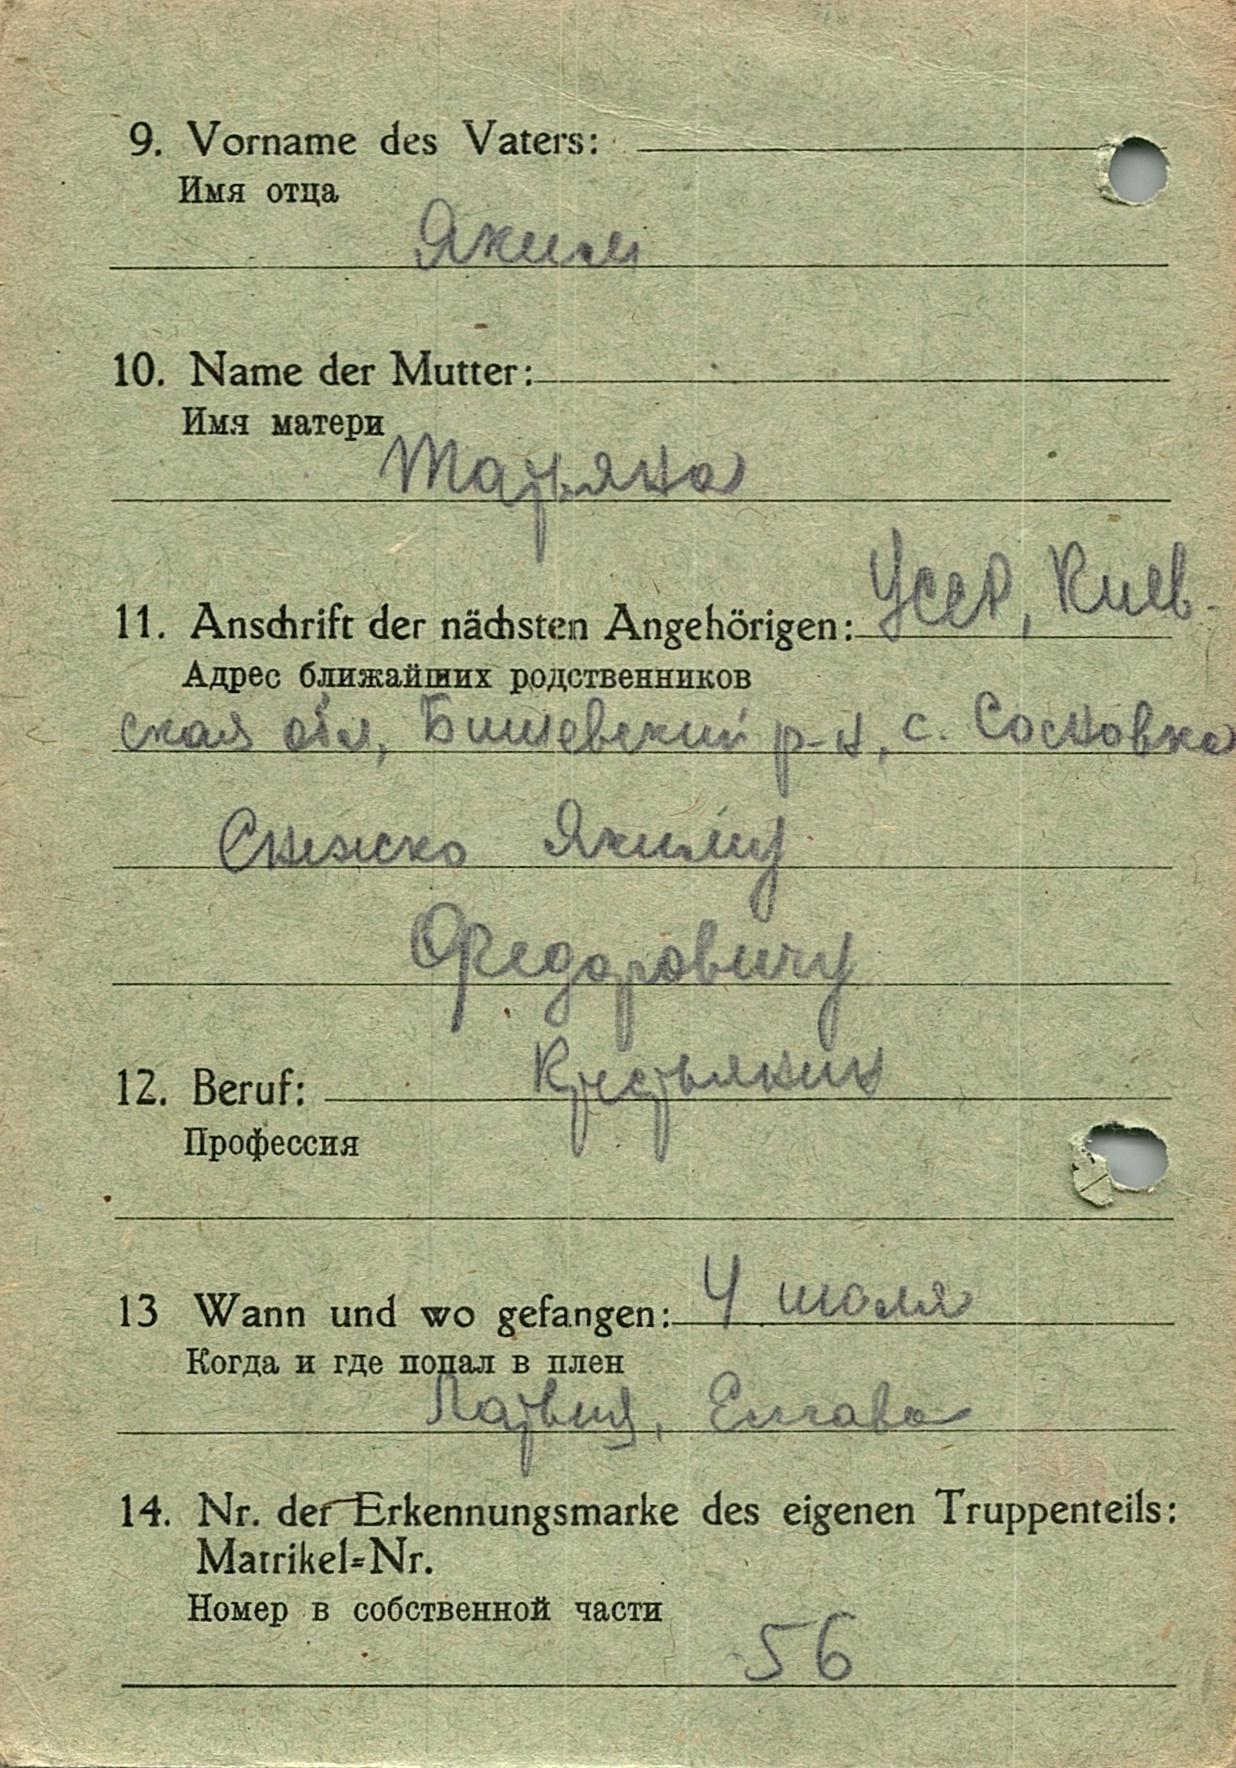 9. Vorname des Vaters:
Имя отца
Яким
10. Name der Mutter:
Имя матери
Татьяна
11. Anschrift der nächsten Angehörigen: УССР, Киев-
Адрес ближайших родственников
ская обл, Бишевский р-н, с. Сосновка
Снежко Якиму
Федоровичу
12. Beruf: Крестьянин
Профессия
13 Wann und wo gefangen: 4 июля
Когда и где попал в плен
Латвия, Елгава
14. Nr. der Erkennungsmarke des eigenen Truppenteils:
Matrikel=Nr.
Номер в собственной части
56